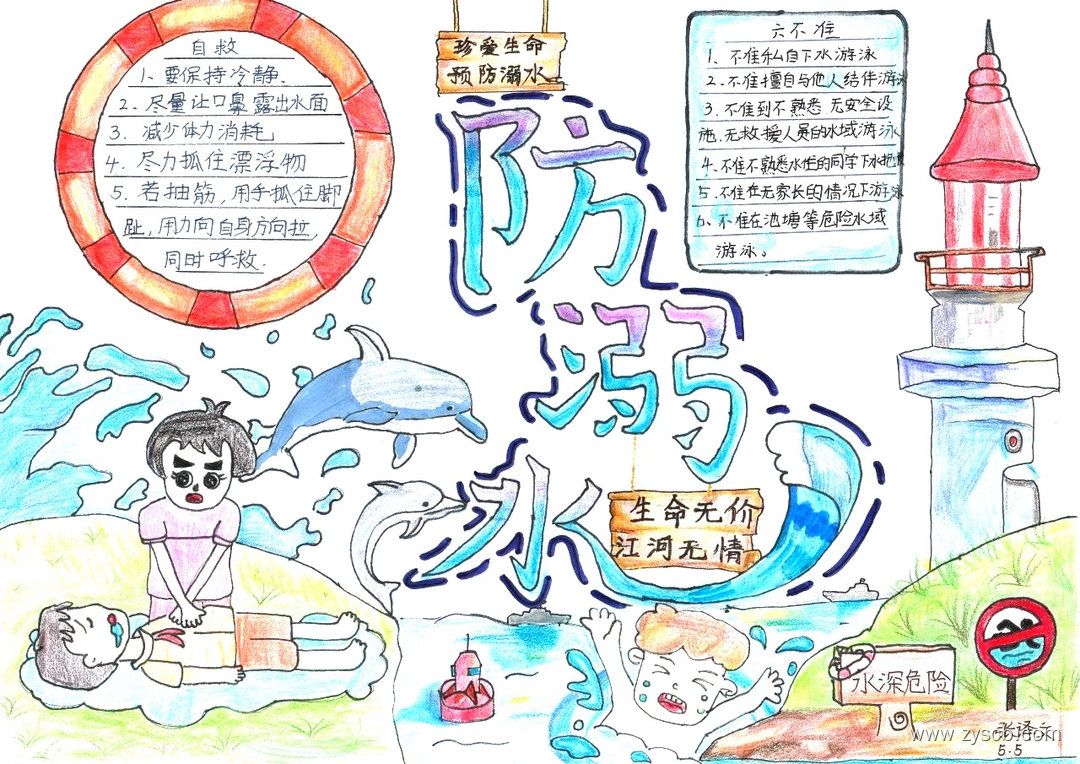 自救
1、要保持冷静.
2、尽量让口鼻露出水面
3、减少体力消耗
4、尽力抓住漂浮物
5、若抽筋,用手抓住脚
趾,用力向自身方向拉,
同时呼救.
珍爱生命
预防溺水
防
溺
水
六不准
1、不准私自下水游泳
2、不准擅自与他人结伴游泳
3、不准到不熟悉无安全设
施、无救援人员的水域游泳
4、不准不熟悉水性的同学下水
5、不准在无家长的情况下游泳
6、不准在池塘等危险水域
游泳。
生命无价
江河无情
水深危险
张泽
5.5